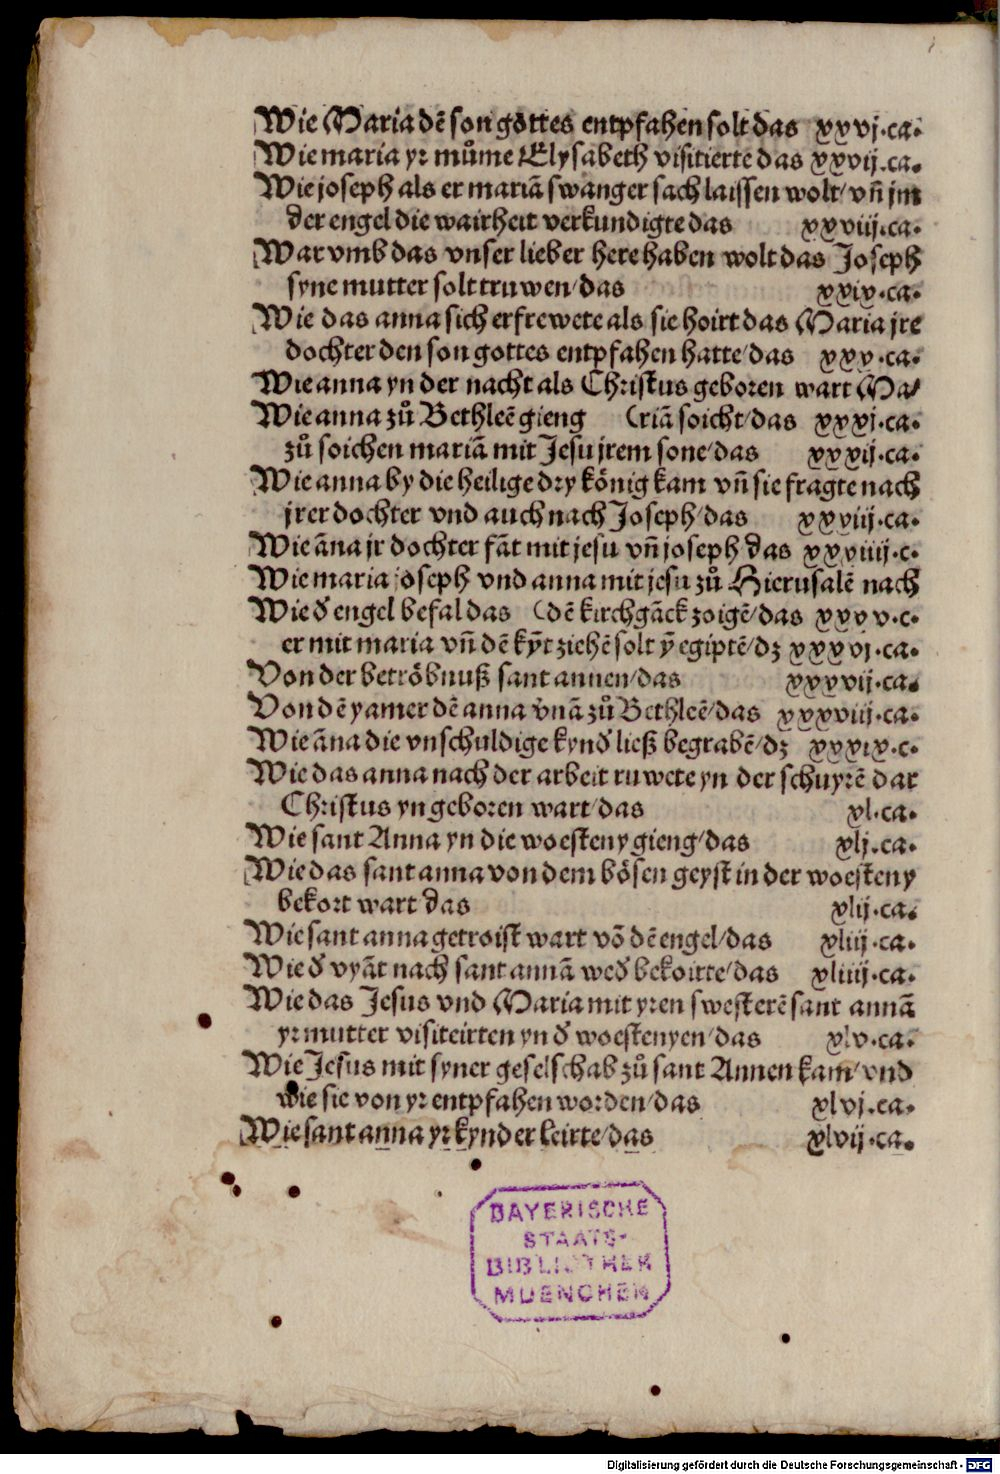 Wie Maria dē son gottes entpfahen solt das xxvj.ca.
Wie maria yr můme Elysabeth visitierte das xxvij.ca.
Wie joseph als er mariā swanger sach laissen wolt/ vñ jm
der engel die wairheit verkundigte das xxviij.ca.
War vmb das vnser lieber here haben wolt das Joseph
syne mutter solt truwen/das xxix.ca.
Wie das anna sich erfrewete als sie hoirt das Maria jre
dochter den son gottes entpfahen hatte/das xxx.ca.
Wie anna yn der nacht als Christus geboren wart Ma/
Wie anna zů Bethleē gieng (riā soicht/das xxxj.ca.
zů soichen mariā mit Jesu jrem sone/das xxxij.ca.
Wie anna by die heilige dry könig kam vñ sie fragte nach
jrer dochter vnd auch nach Joseph/das xxviij.ca.
Wie āna jr dochter fāt mit jesu vñ joseph das xxviiij.c.
Wie maria joseph vnd anna mit jesu zů Hierusalē nach
Wie d' engel befal das (dē kirchgāck zoigē/das xxxv.c.
er mit maria vñ dē kȳt ziehē solt ȳ egiptē/dz xxxvj.ca.
Von der betröbnuß sant annen/das xxxvij.ca.
Von dē yamer dē anna vnā zů Bethleē/das xxxviij.ca.
Wie āna die vnschuldige kynd' ließ begrabē/dz xxxix.c.
Wie das anna nach der arbeit ruwete yn der schuyrē dar
Christus yn geboren wart/das xl.ca.
Wie sant Anna yn die woesteny gieng/das xlj.ca.
Wie das sant anna von dem bösen geyst in der woesteny
bekort wart das xlij.ca.
Wie sant anna getroist wart vō dē engel/das xliij.ca.
Wie d' vyāt nach sant annā wed' bekoirte/das xliiij.ca.
Wie das Jesus vnd Maria mit yren swesterē sant annā
yr mutter visiteirten yn d' woestenyen/das xlv.ca.
Wie Jesus mit syner geselschab zů sant Annen kam/vnd
wie sie von yr entpfahen worden/das xlvj.ca.
Wie sant anna yr kynder leirte/das xlvij.ca.
BAYERISCHE
STAATS-
BIBLIOTHEK
MUENCHEN
Digitalisierung gefördert durch die Deutsche Forschungsgemeinschaft - DFG